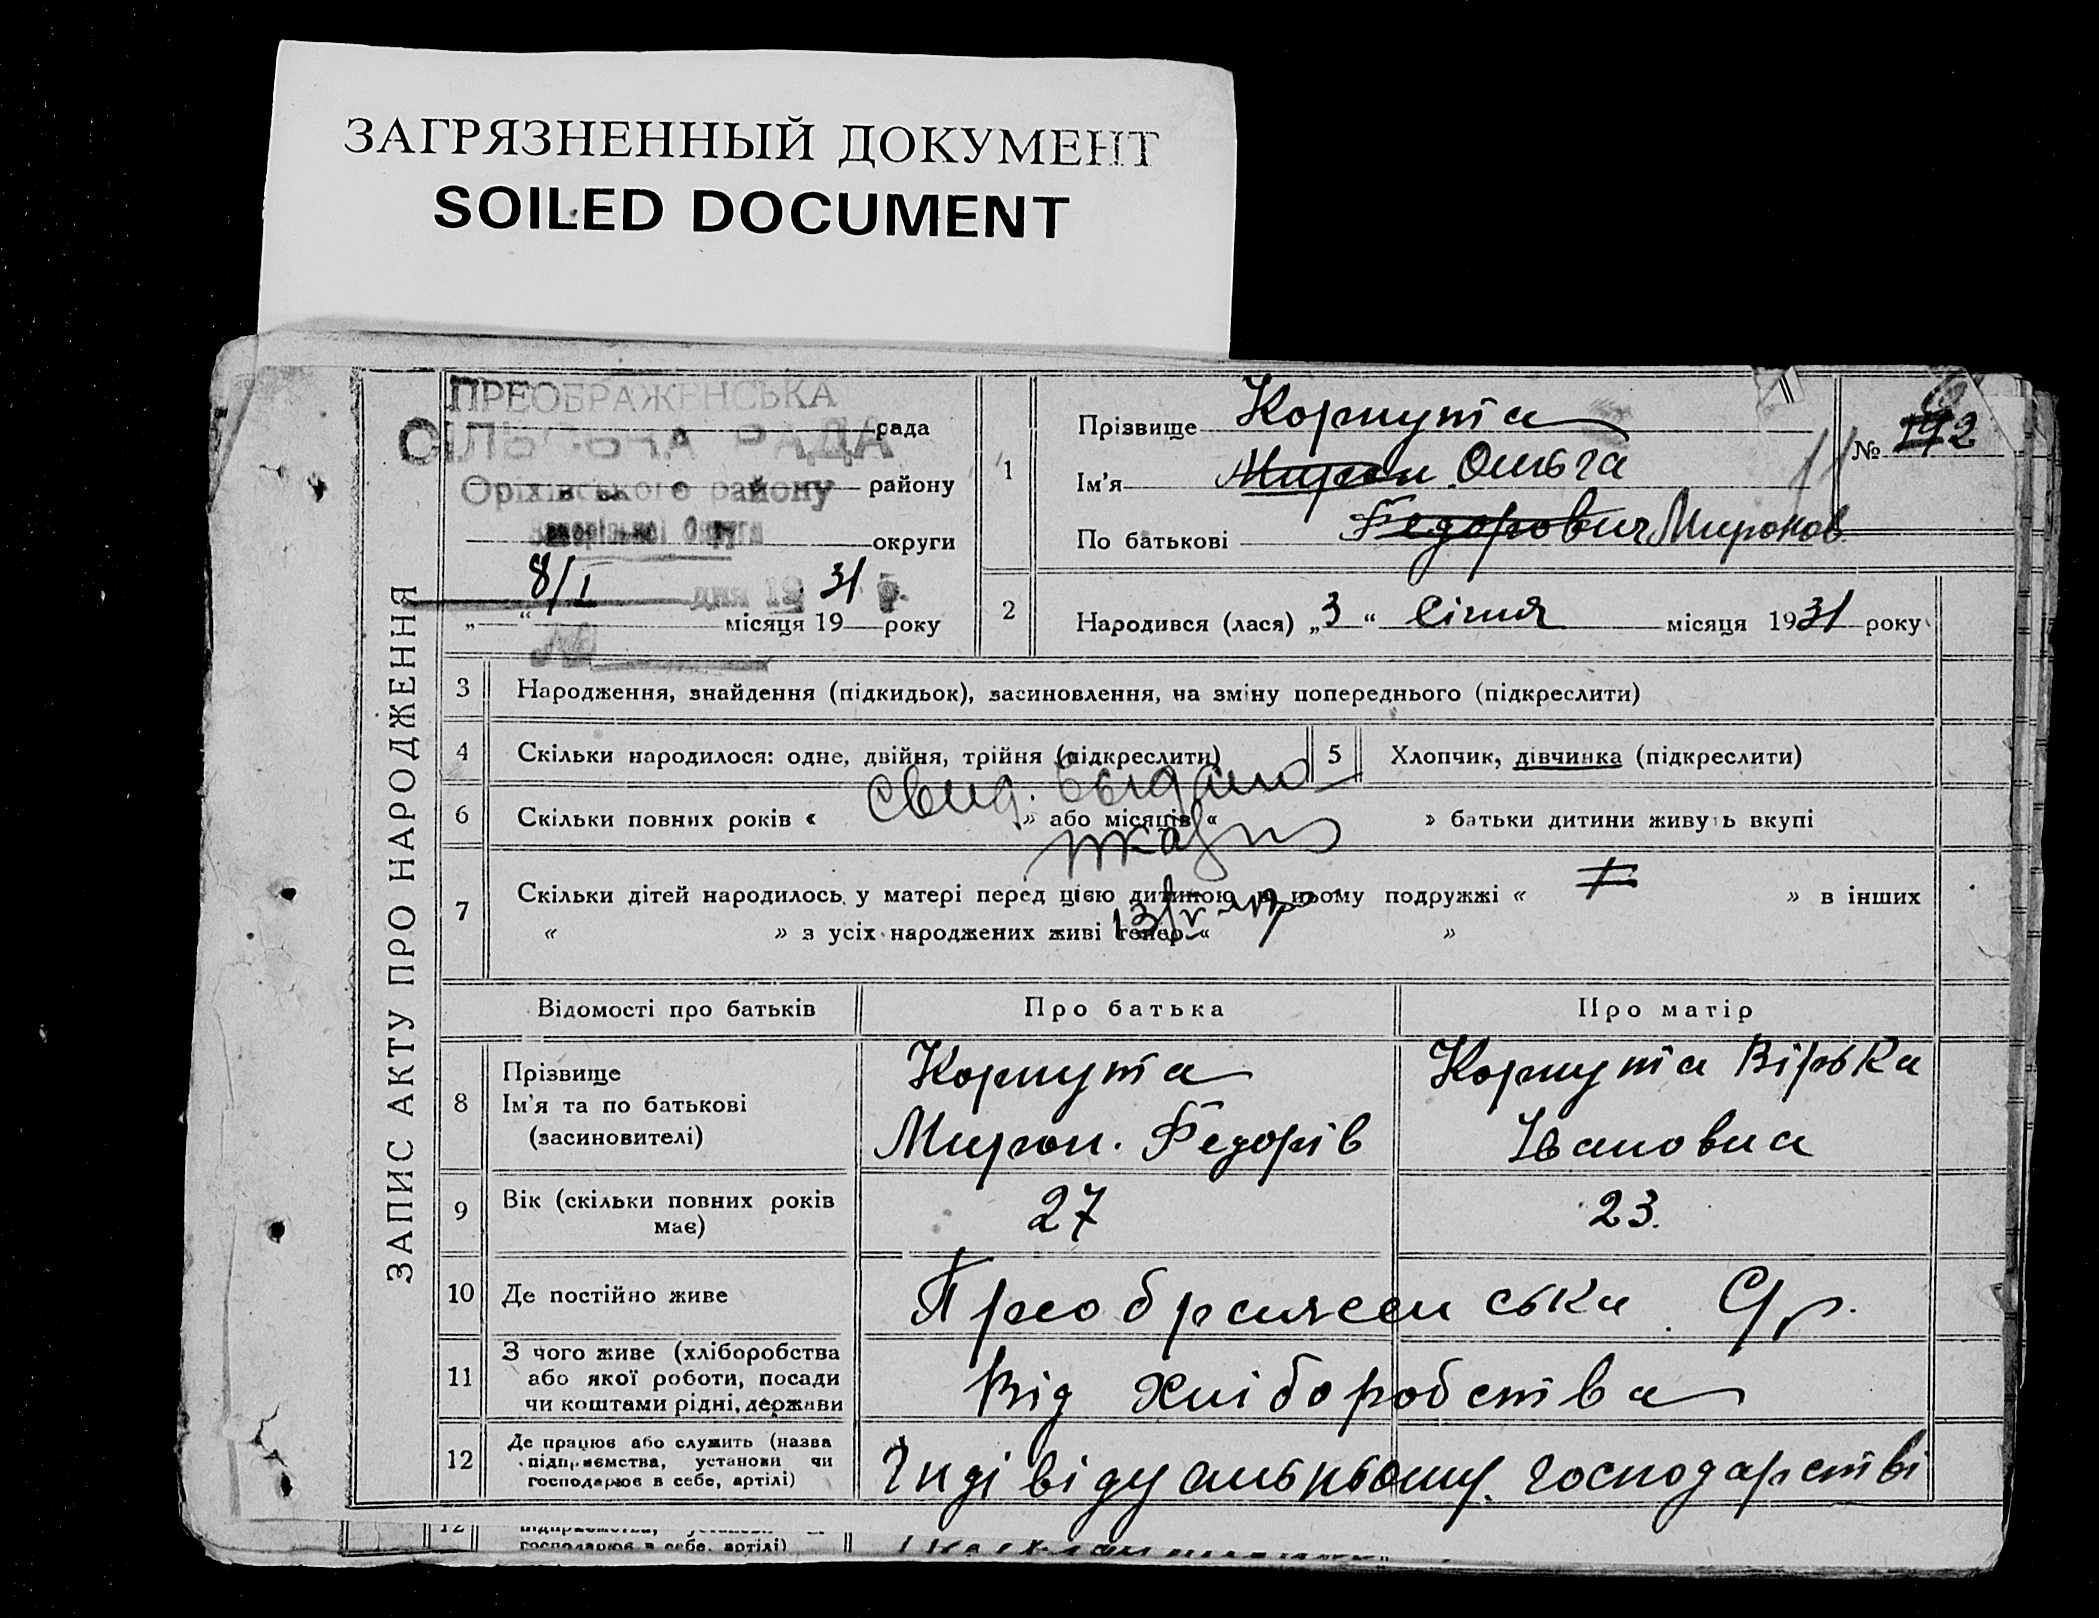 ЗАГРЯЗНЕННЫЙ ДОКУМЕНТ
SOILED DOCUMENT
ЗАПИС АКТУ ПРО НАРОДЖЕННЯ
ПРЕОБРАЖЕНСЬКА
рада
СІЛЬСЬКА РАДА
Оріхівського району району
Округи
округи
8/I дня 19 31 р.
„ “ місяця 19 року
№
1
Прізвище Кормута
Ім'я Мирон Ольга
По батькові Федорович Миронов
№ 192
2
Народився (лася) „3“ Січня місяця 1931 року
3 Народження, знайдення (підкидьок), засиновлення, на зміну попереднього (підкреслити)
4 Скільки народилося: одне, двійня, трійня (підкреслити) 5 Хлопчик, дівчинка (підкреслити)
свид. выдано
6 Скільки повних років « » або місяців « » батьки дитини живуть вкупі
7 Скільки дітей народилось у матері перед цією дитиною в цьому подружжі « » в інших
« » з усіх народжених живі тепер « »
Відомості про батьків Про батька Про матір
8 Прізвище
Ім'я та по батькові
(засиновителі)
Кормута
Мирон. Федорів
Кормута Вірька
Івановна
9 Вік (скільки повних років
має)
27 23.
10 Де постійно живе Преображенська С/р.
11 З чого живе (хліборобства
або якої роботи, посади
чи коштами рідні, держави
Від хліборобства
12 Де працює або служить (назва
підприємства, установи чи
господарює в себе, артілі)
Індівідуальньому господарстві
12
господарює в себе, артілі)